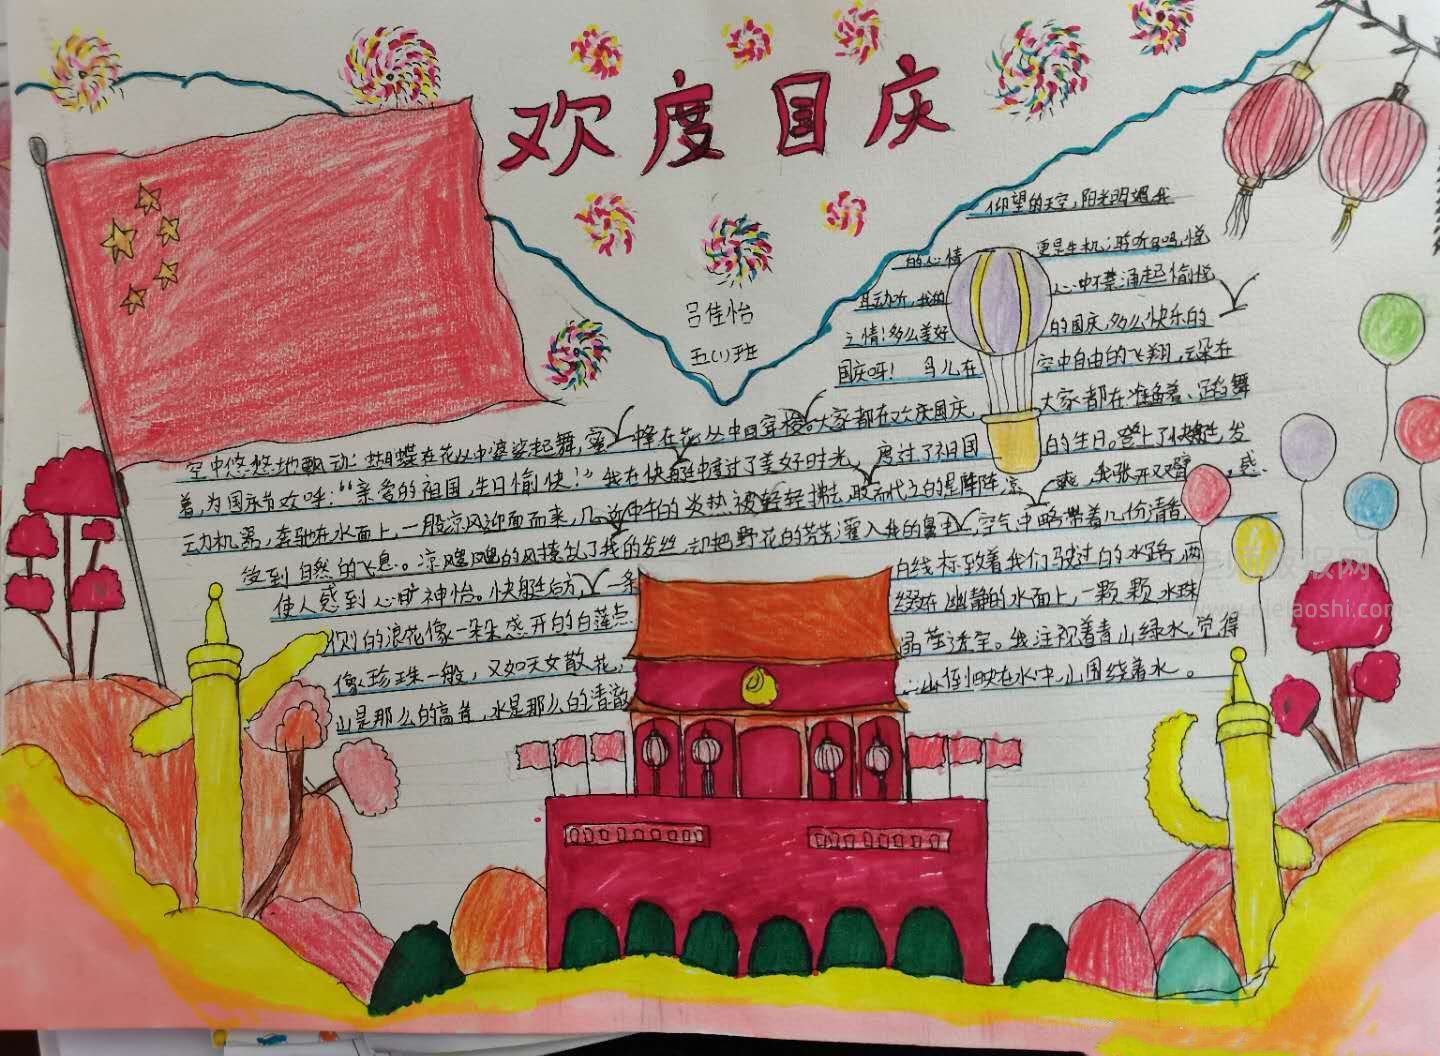 欢度国庆
吕佳怡
五(1)班
仰望的天空,阳光明媚,我
的心情 更是生机;聆听鸟鸣,悦
耳动听,我的 心中不禁涌起愉悦
之情!多么美好 的国庆,多么快乐的
国庆呀! 鸟儿在 空中自由的飞翔,云朵在
空中悠悠地飘动;蝴蝶在花丛中婆娑起舞,蜜 蜂在花丛中回穿梭。大家都在欢庆国庆 大家都在准备着、踏舞
着,为国庆节欢呼:“亲爱的祖国,生日愉快!”我在快艇中度过了美好时光, 度过了祖国 的生日。登上了快艇,发
动机器,奔驰在水面上,一股凉风迎面而来,几 近中午的炎热被轻轻拂去,取而代之的是阵阵凉 爽,我张开双臂 感
受到自然的飞息。凉飕飕的风撩乱了我的发丝,却把野花的芳芳灌入我的鼻 空气中略带着几份清香
使人感到心旷神怡。快艇后方, 一条 白线标致着我们驶过的水路,两
侧的浪花像一朵朵盛开的白莲点 缀在幽静的水面上,一颗颗水珠
像珍珠一般,又如天女散花, 晶莹透亮。我注视着青山绿水,觉得
山是那么的高昔,水是那么的清澈 山倒映在水中,山围绕着水。
www.elelaoshi.com